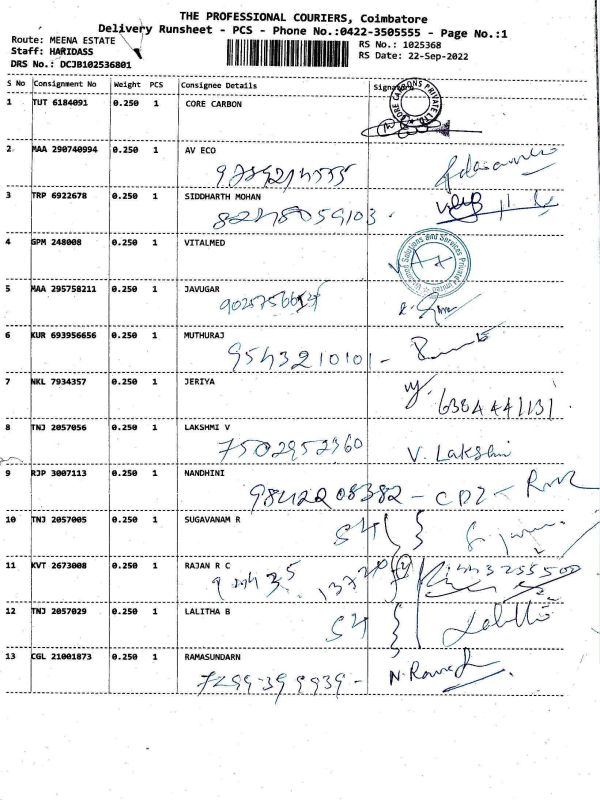 THE PROFESSIONAL COURIERS, Coimbatore
Delivery Runsheet - PCS - Phone No.:0422-3505555 - Page No.:1
Route: MEENA ESTATE
Staff: HARIDASS
DRS No.: DCJB102536801
RS No.: 1025368
RS Date: 22-Sep-2022
S No Consignment No Weight PCS Consignee Details Signature
1 TUT 6184091 0.250 1 CORE CARBON
2 MAA 290740994 0.250 1 AV ECO
3 TRP 6922678 0.250 1 SIDDHARTH MOHAN
8248059103
4 GPM 248008 0.250 1 VITALMED
Solutions and Services Private Limited
5 MAA 295758211 0.250 1 JAVUGAR
6 KUR 693956656 0.250 1 MUTHURAJ
9543210101 -
7 NKL 7934357 0.250 1 JERIYA
6384441131
8 TNJ 2057056 0.250 1 LAKSHMI V
7502952360 V. Lakshmi
9 RJP 3007113 0.250 1 NANDHINI
9842208382 -
10 TNJ 2057005 0.250 1 SUGAVANAM R
11 KVT 2673008 0.250 1 RAJAN R C
12 TNJ 2057029 0.250 1 LALITHA B
Lalitha
13 CGL 21001873 0.250 1 RAMASUNDARN
7299399939 - N. Ramesh